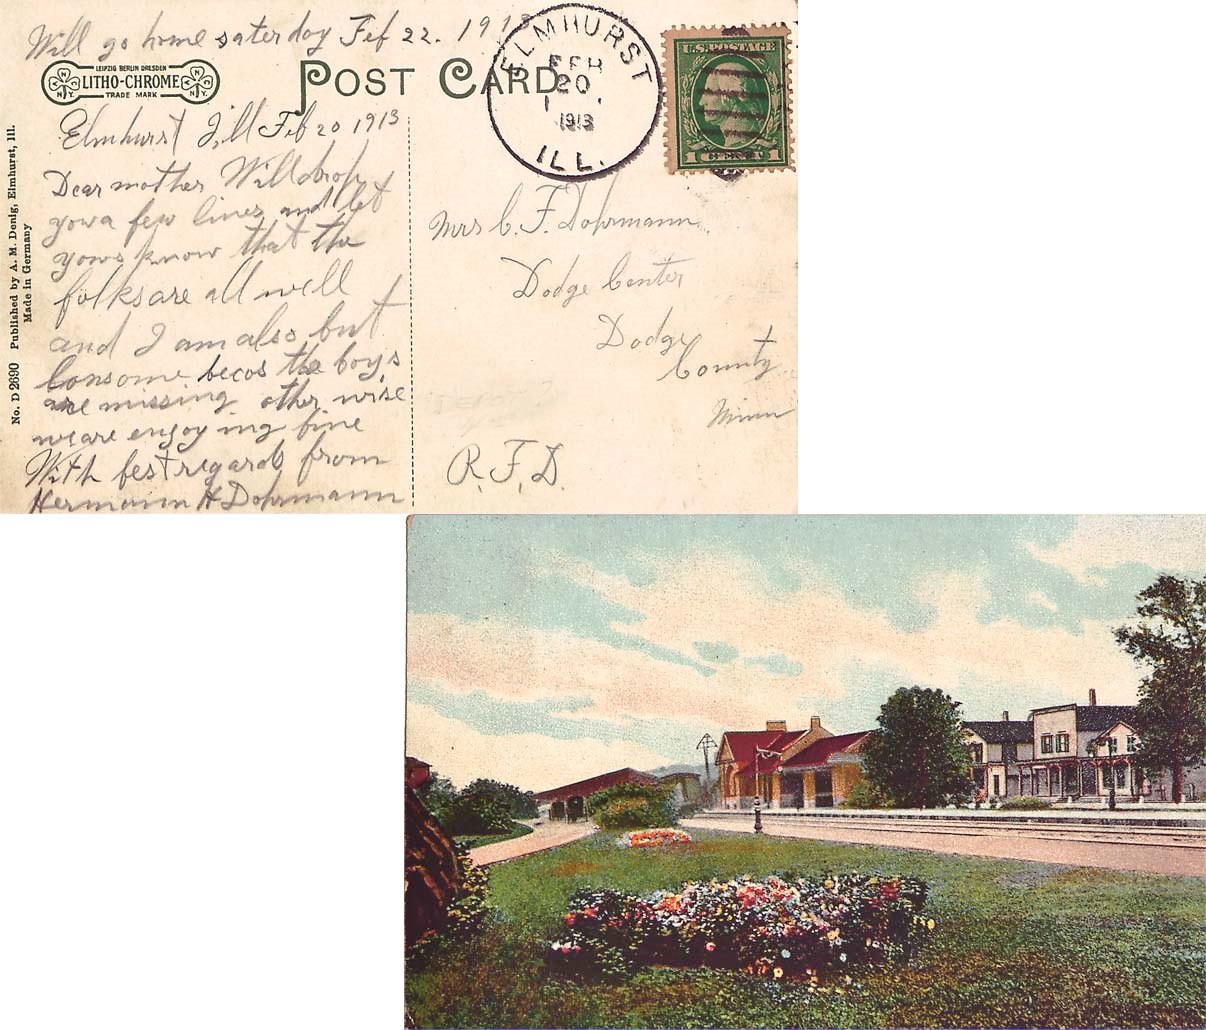 Will go home saterday Feb 22. 1913
LEIPZIG BERLIN DRESDEN
LITHO-CHROME
TRADE MARK
N.Y.
N.Y.
POST CARD
ELMHURST
FEB
20
1913
ILL.
U.S. POSTAGE
1 CENT 1
Elmhurst Ill Feb 20 1913
Dear mother Will drop
yow a few lines and let
yows know that the
folks are all well
and I am also but
lonsome becos the boys
are missing other wise
we are enjoy ing fine
With best regards from
Hermann H Dohrmann
Mrs C. F. Dohrmann
Dodge Center
Dodge
County
Minn
R.F.D.
No. D 2690 Published by A. M. Denig, Elmhurst, Ill.
Made in Germany